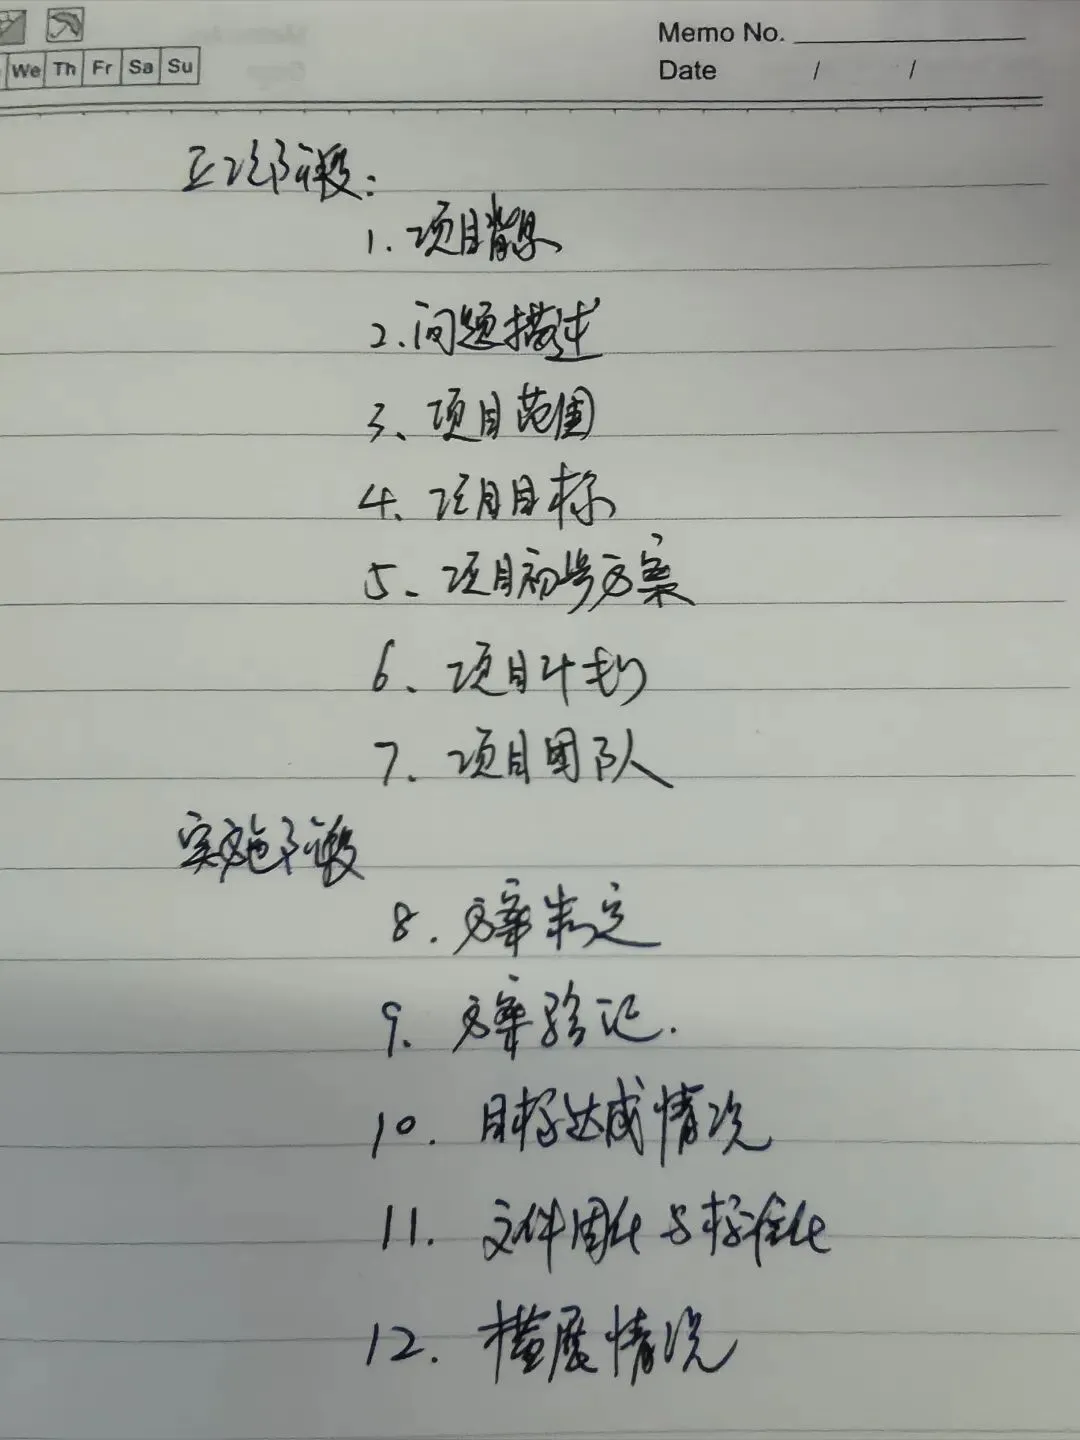 Memo No.
We Th Fr Sa Su
Date / /
立项阶段：
1. 项目背景
2. 问题描述
3、项目范围
4、项目目标
5、项目初步方案
6、项目计划
7、项目团队
实施阶段
8. 方案制定
9、方案验证.
10. 目标达成情况
11. 文件固化与标准化
12. 横展情况